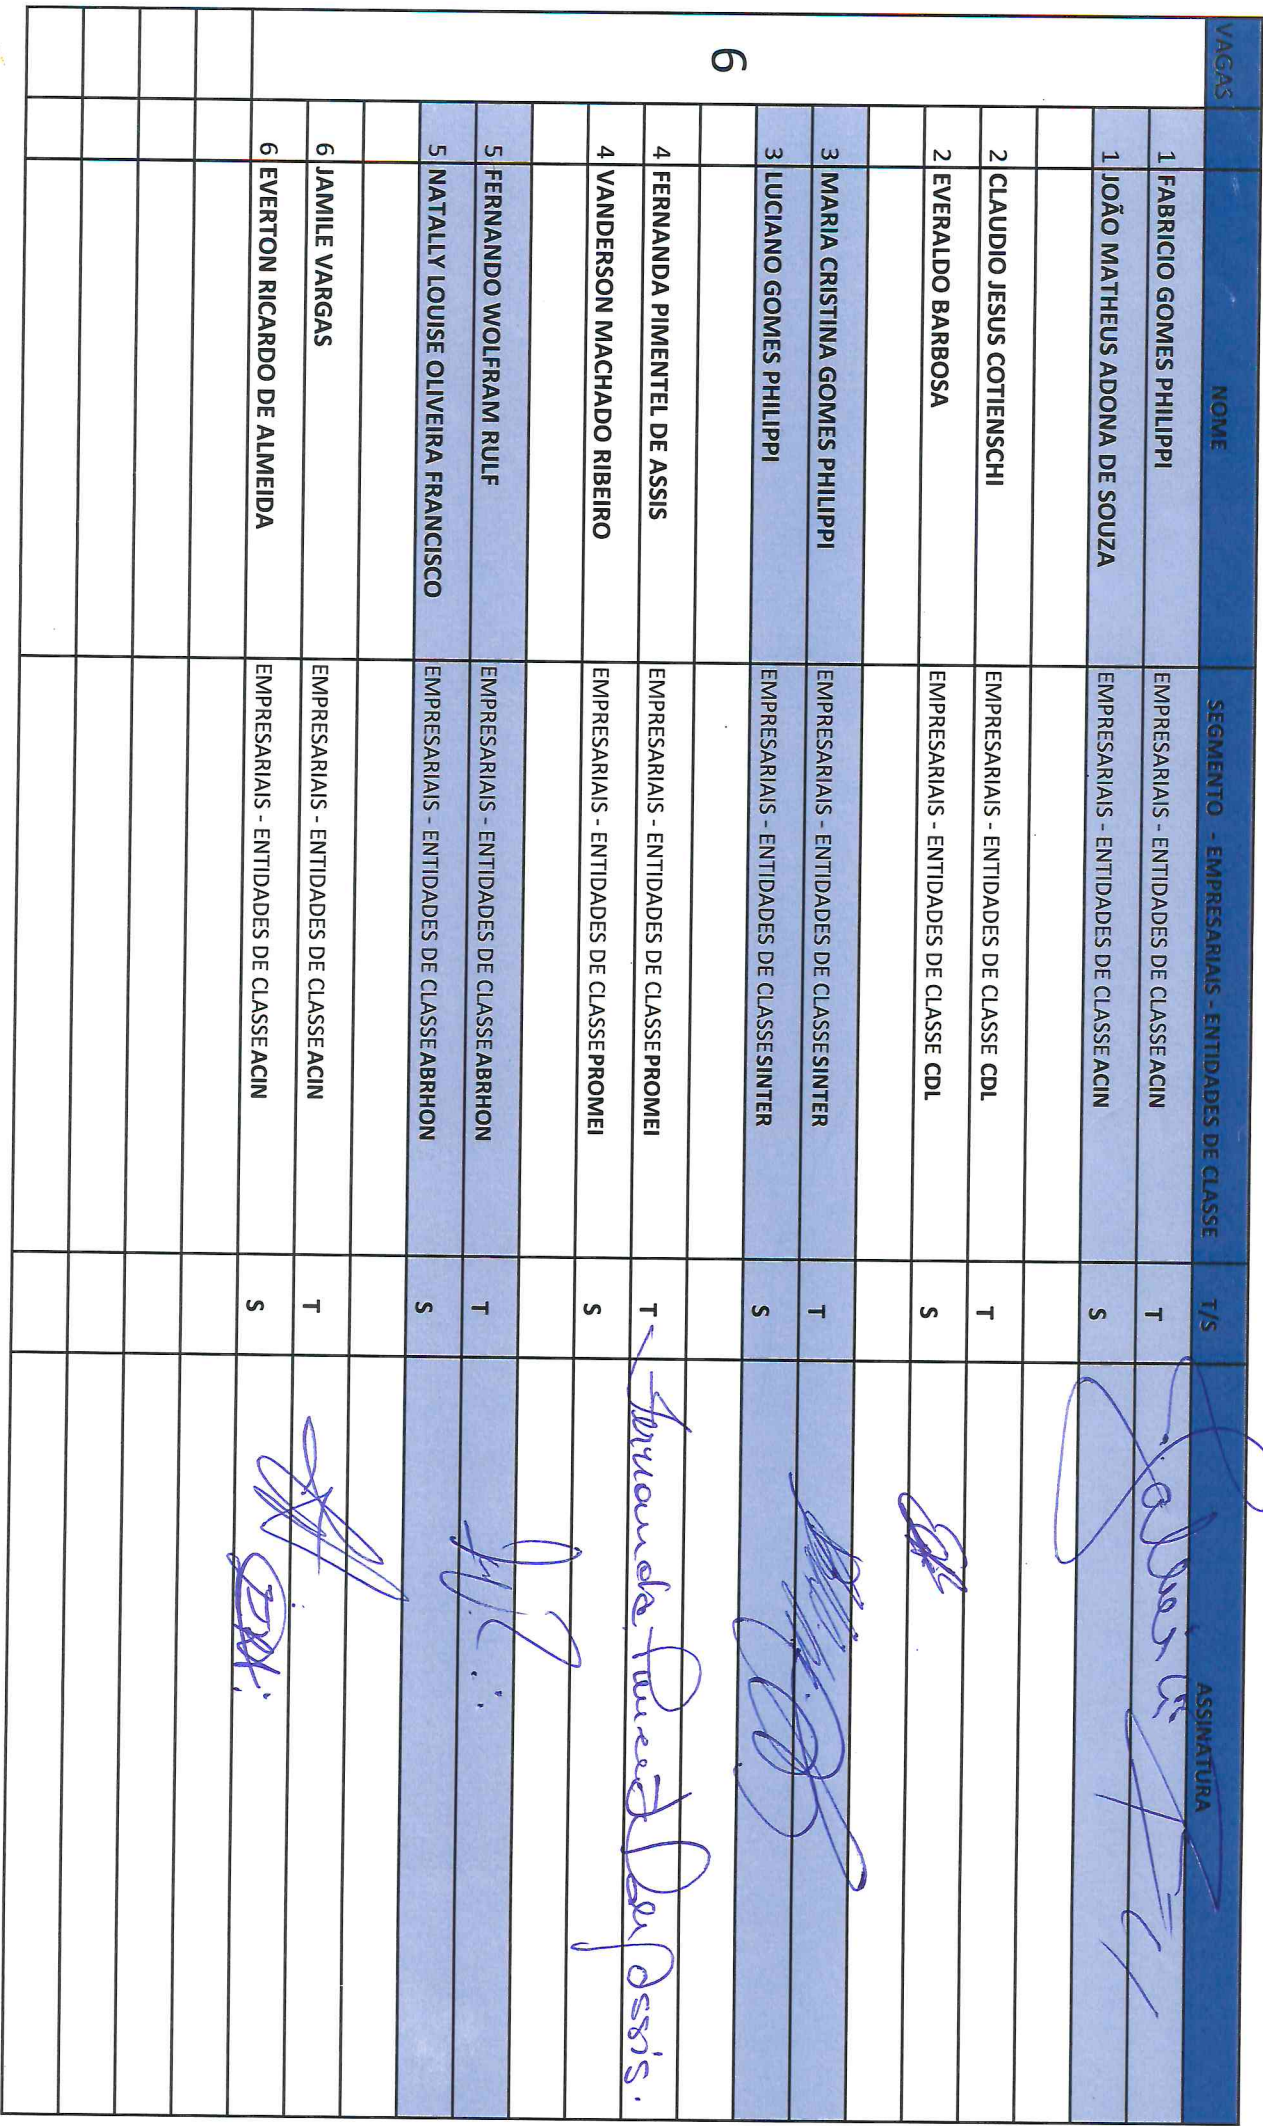 VAGAS NOME SEGMENTO - EMPRESARIAIS - ENTIDADES DE CLASSE T/S ASSINATURA
1 FABRICIO GOMES PHILIPPI EMPRESARIAIS - ENTIDADES DE CLASSE ACIN T
1 JOÃO MATHEUS ADONA DE SOUZA EMPRESARIAIS - ENTIDADES DE CLASSE ACIN S
2 CLAUDIO JESUS COTIENSCHI EMPRESARIAIS - ENTIDADES DE CLASSE CDL T
2 EVERALDO BARBOSA EMPRESARIAIS - ENTIDADES DE CLASSE CDL S
3 MARIA CRISTINA GOMES PHILIPPI EMPRESARIAIS - ENTIDADES DE CLASSE SINTER T
3 LUCIANO GOMES PHILIPPI EMPRESARIAIS - ENTIDADES DE CLASSE SINTER S
6
4 FERNANDA PIMENTEL DE ASSIS EMPRESARIAIS - ENTIDADES DE CLASSE PROMEI T Fernanda Pimentel de Assis.
4 VANDERSON MACHADO RIBEIRO EMPRESARIAIS - ENTIDADES DE CLASSE PROMEI S
5 FERNANDO WOLFRAM RULF EMPRESARIAIS - ENTIDADES DE CLASSE ABRHON T
5 NATALLY LOUISE OLIVEIRA FRANCISCO EMPRESARIAIS - ENTIDADES DE CLASSE ABRHON S
6 JAMILE VARGAS EMPRESARIAIS - ENTIDADES DE CLASSE ACIN T
6 EVERTON RICARDO DE ALMEIDA EMPRESARIAIS - ENTIDADES DE CLASSE ACIN S